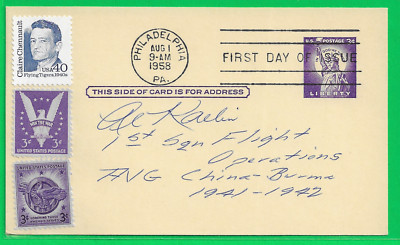 Claire Chennault
Flying Tigers, 1940s
USA 40
PHILADELPHIA
AUG 1
9-AM
1958
PA.
FIRST DAY OF ISSUE
U.S. POSTAGE 3¢
LIBERTY
THIS SIDE OF CARD IS FOR ADDRESS
WIN THE WAR
3¢ 3¢
UNITED STATES POSTAGE
3¢ 3¢
Al
1st Sqn Flight
Operations
AVG China-Burma
1941-1942